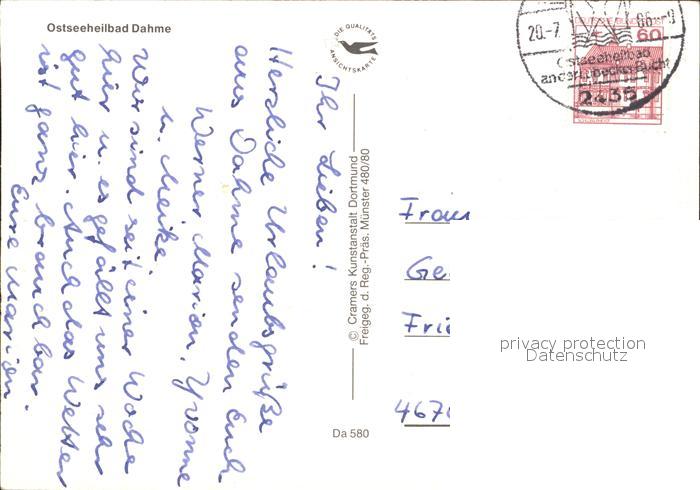 Ostseeheilbad Dahme
DIE QUALITÄTS
ANSICHTSKARTE
20.-7. 86-9
60
Ostseeheilbad
an der Lübecker Bucht
2435
Ihr Lieben!
Herzliche Urlaubsgrüße
aus Dahme senden Euch
Werner, Marion, Yvonne
u. Meike.
Wir sind seit einer Woche
hier u. es gefällt uns sehr
gut hier. Auch das Wetter
ist ganz brauchbar.
Eure Marion.
© Cramers Kunstanstalt Dortmund
Freigeg. d. Reg.-Präs. Münster 480/80
Da 580
Frau
Ge
Frie
467
privacy protection
Datenschutz